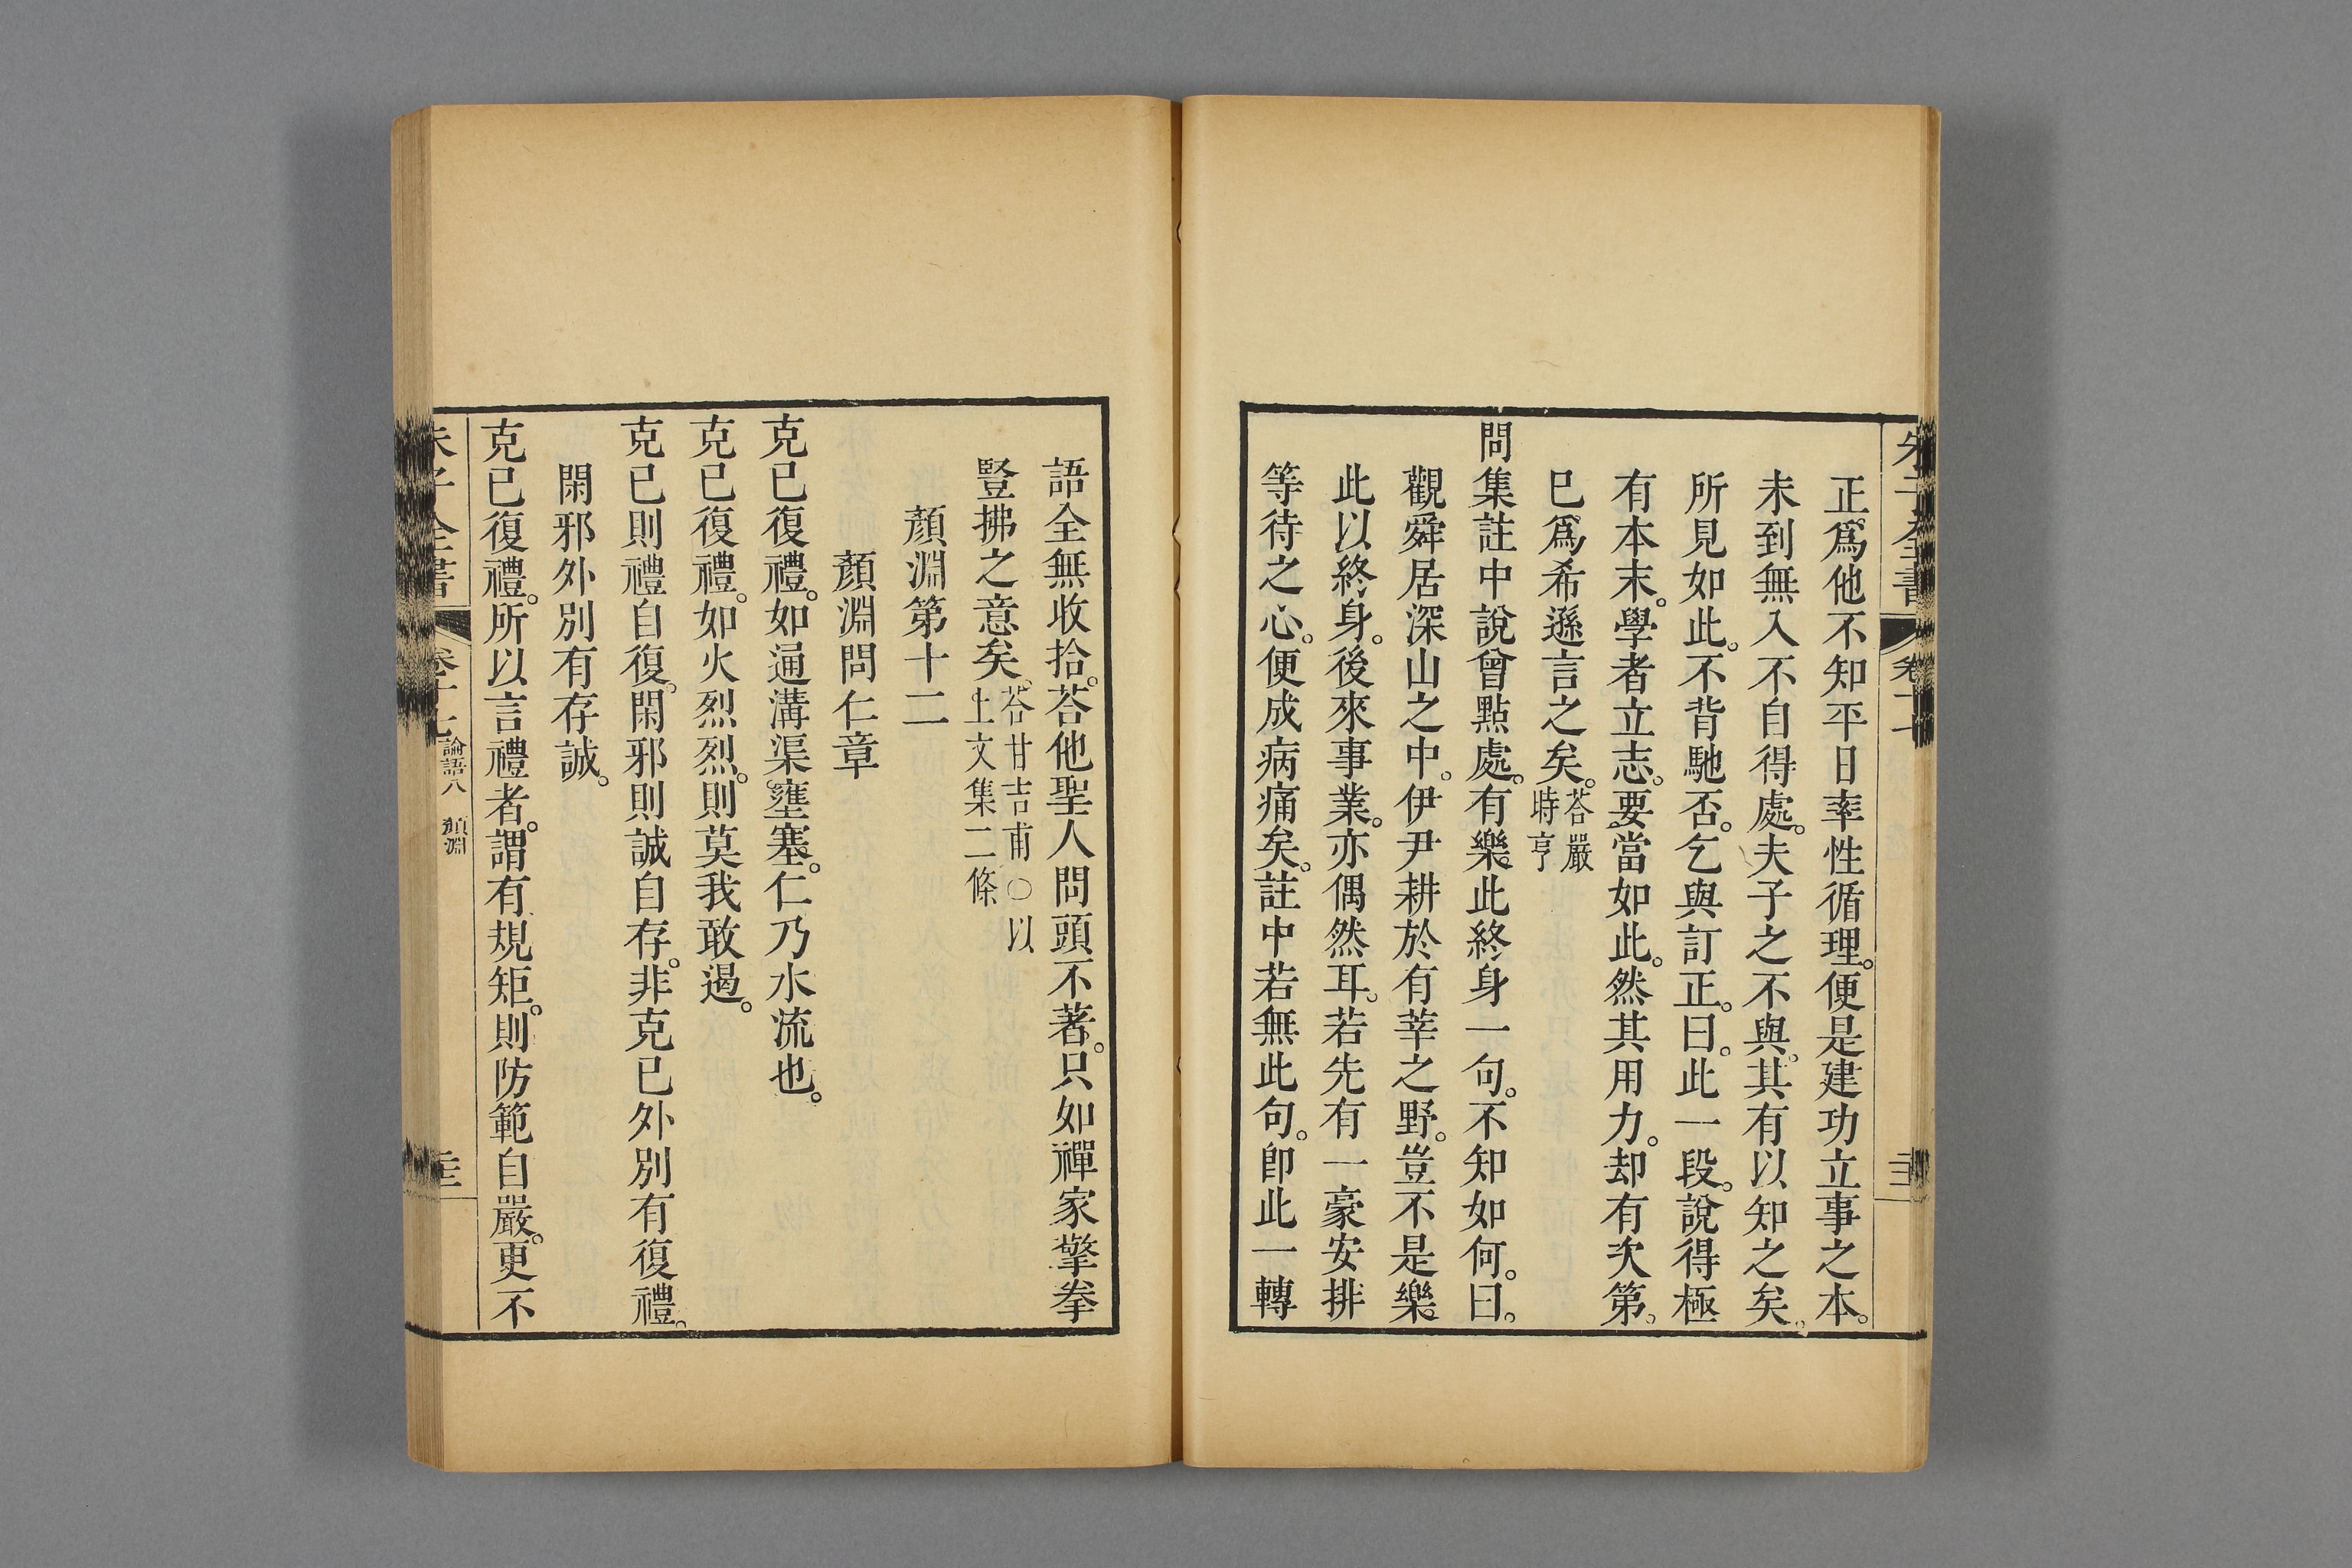 朱子全書
卷十七
正爲他不知平日率性循理。便是建功立事之本。
未到無入不自得處。夫子之不與。其有以知之矣。
所見如此。不背馳否。乞與訂正。曰。此一段。說得極
有本末。學者立志。要當如此。然其用力。却有次第。
已爲希遜言之矣。荅嚴
時亨
問集註中說曾點處。有樂此終身一句。不知如何。曰。
觀舜居深山之中。伊尹耕於有莘之野。豈不是樂
此以終身。後來事業。亦偶然耳。若先有一豪安排
等待之心。便成病痛矣。註中若無此句。卽此一轉
語全無收拾。荅他聖人問頭不著。只如禪家擎拳
豎拂之意矣。荅甘吉甫○以
上文集二條
顏淵第十二
顏淵問仁章
克已復禮。如通溝渠壅塞。仁乃水流也。
克已復禮。如火烈烈。則莫我敢遏。
克已則禮自復。閑邪則誠自存。非克已外別有復禮。
閑邪外別有存誠。
克已復禮。所以言禮者。謂有規矩。則防範自嚴。更不
朱子全書
卷十七
論語八 顏淵